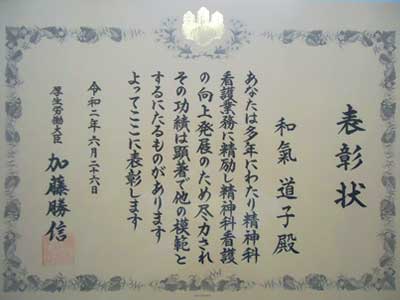 表彰状
和氣 道子殿
あなたは多年にわたり精神科
看護業務に精励し精神科看護
の向上発展のため尽力され
その功績は顕著で他の模範と
するにたるものがあります
よってここに表彰します
令和二年六月二十六日
厚生労働大臣 加藤勝信